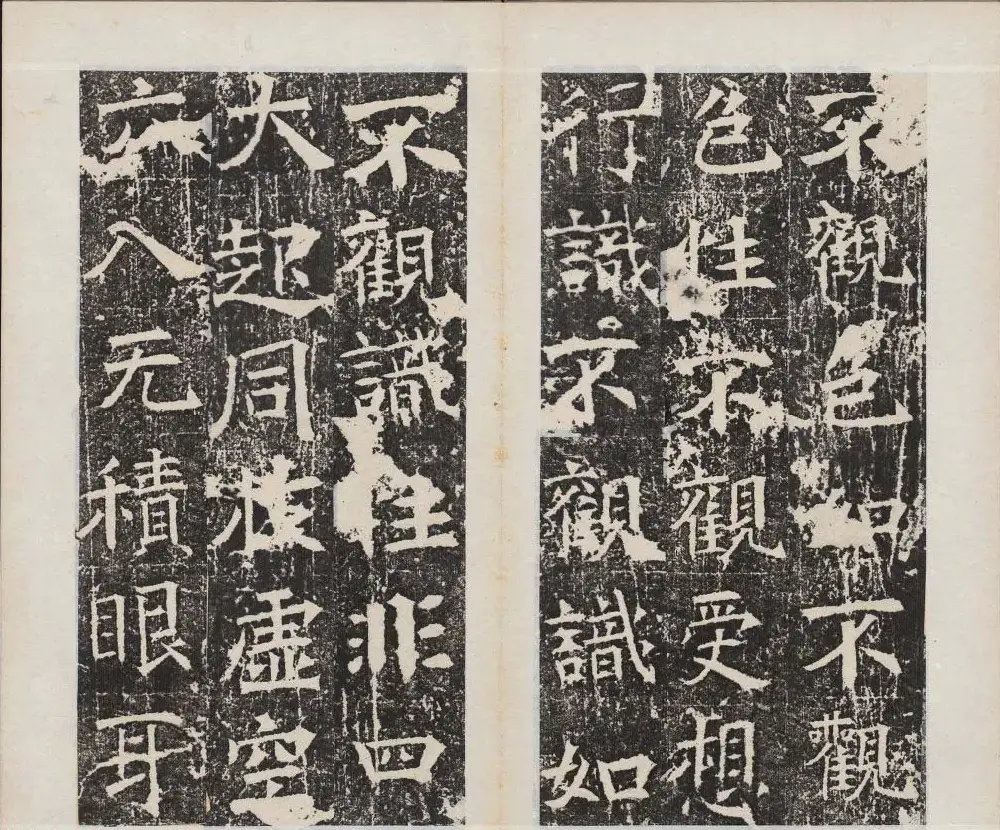 不觀色如不觀
色性不觀受想
行識不觀識如
不觀識性非四
大起同於虛空
六入无積眼耳